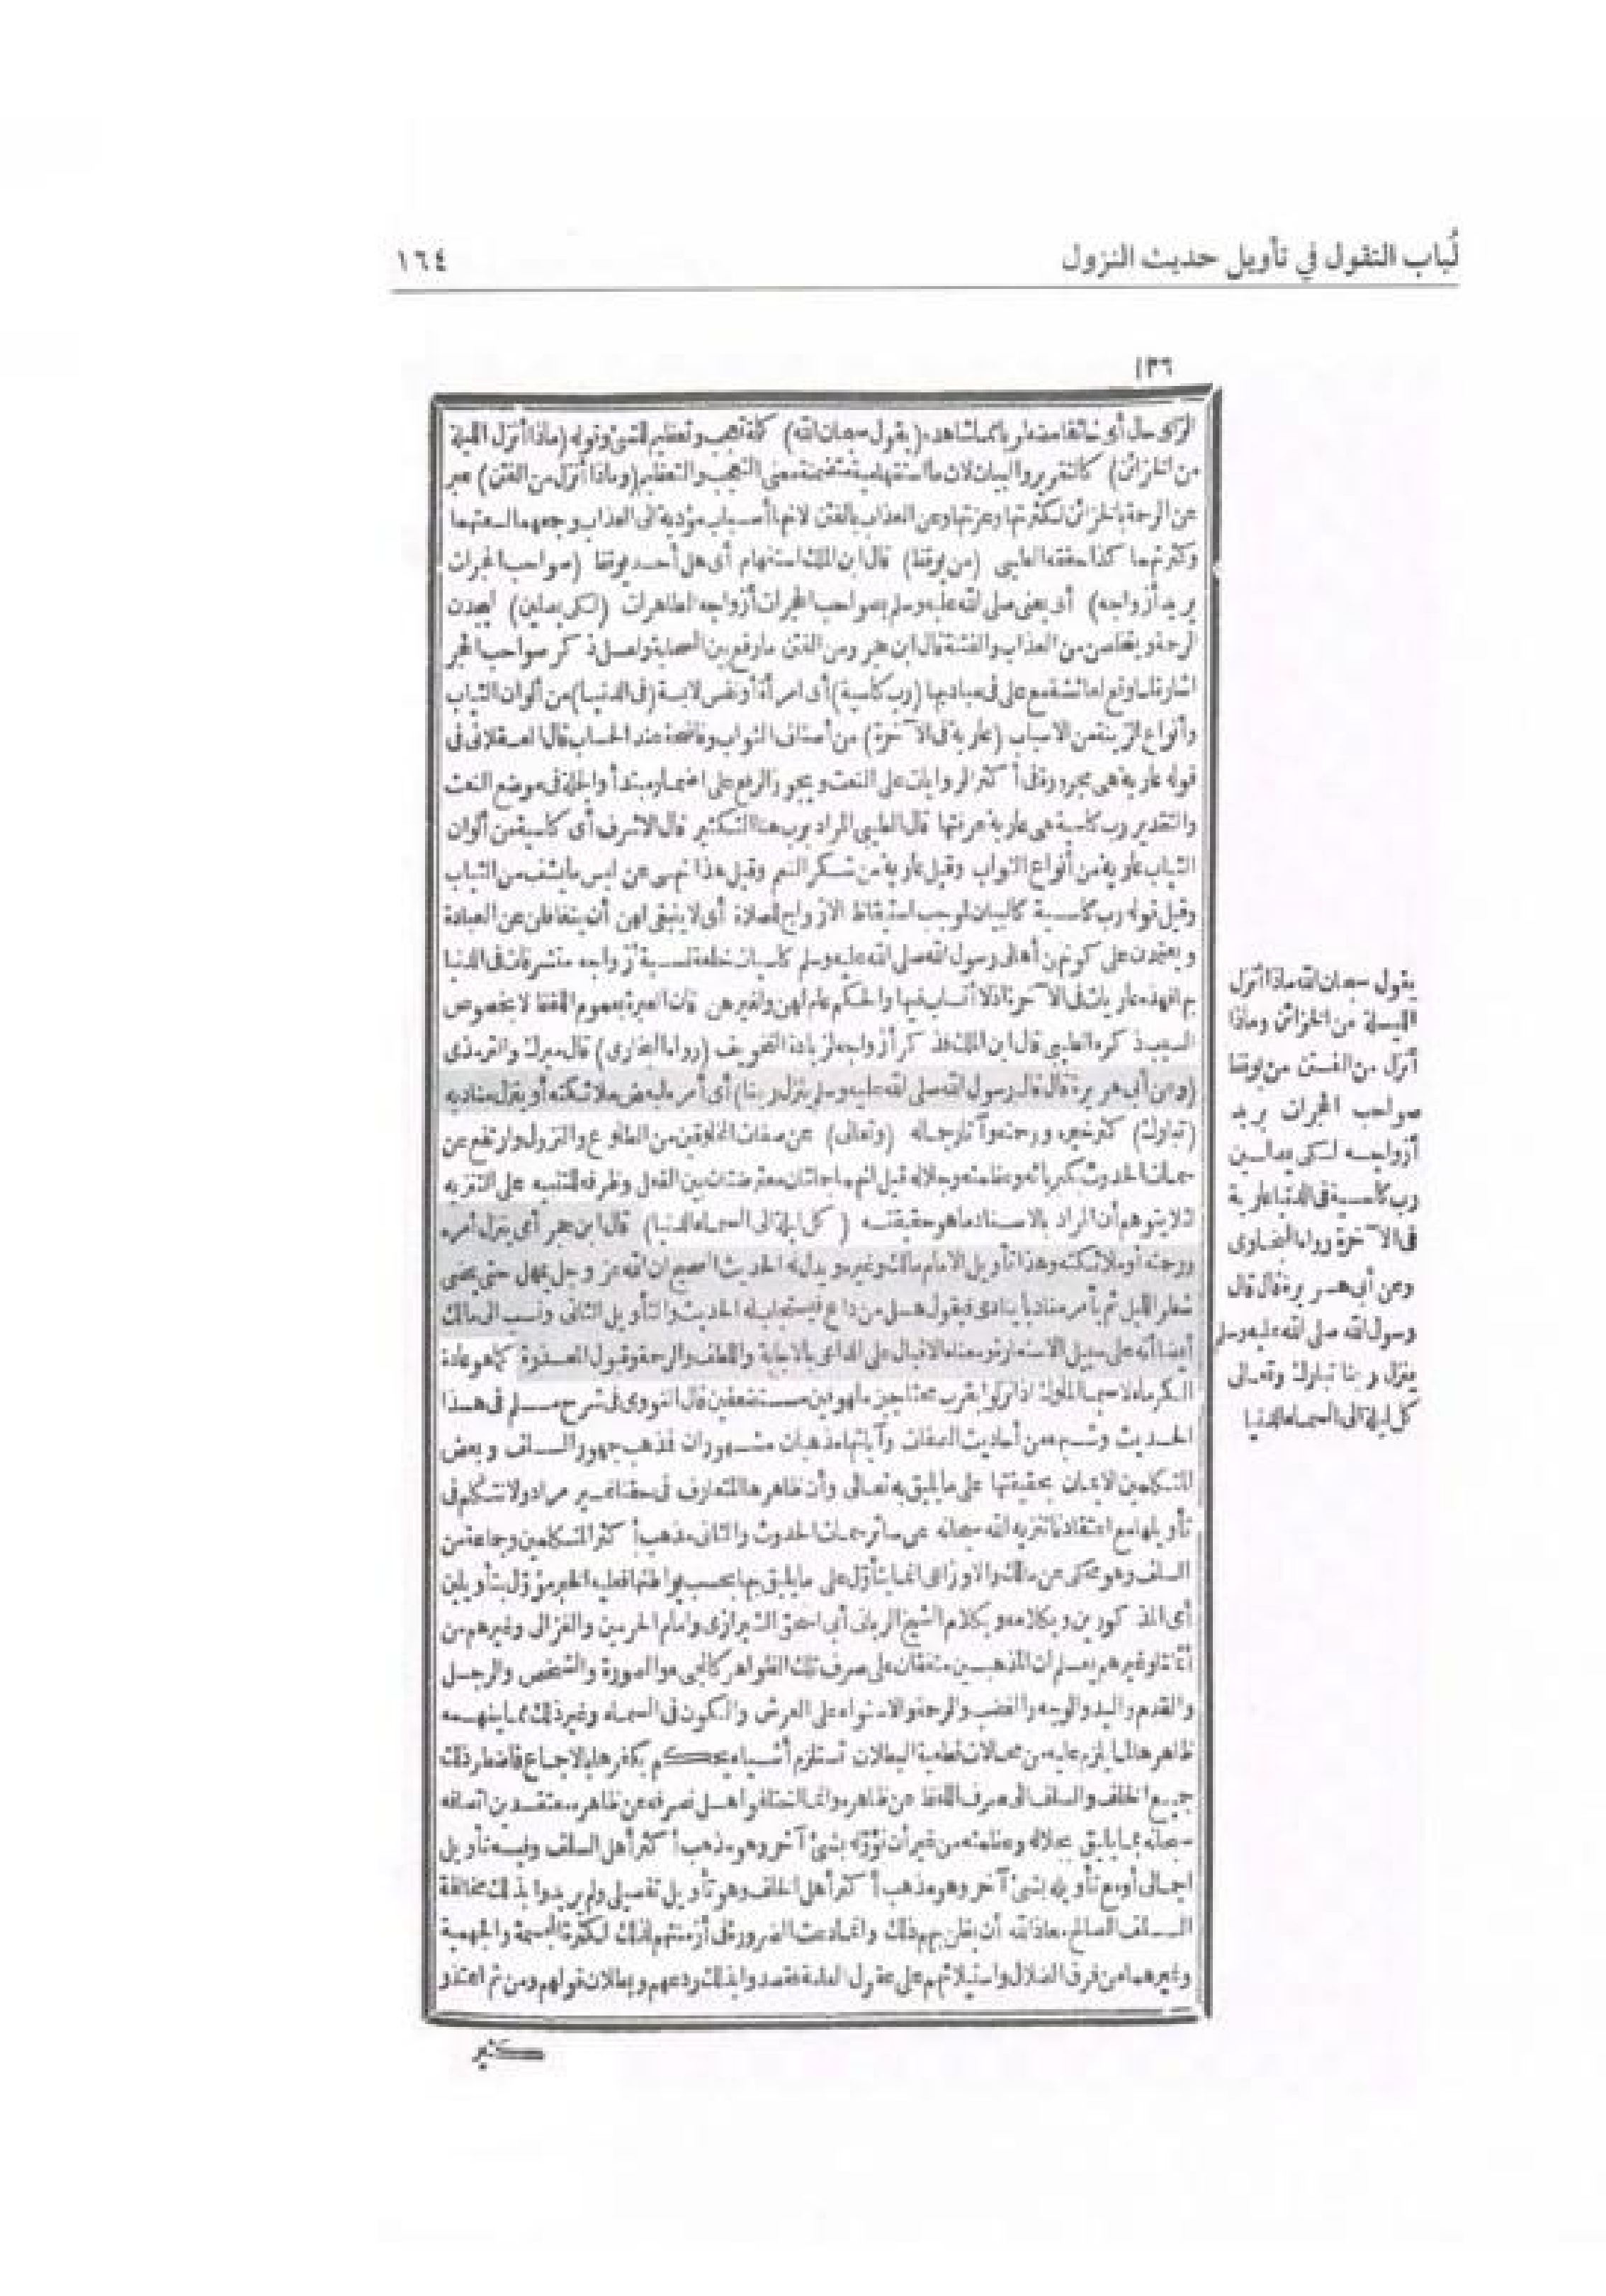 لُباب النقول في تأويل حديث النزول
١٦٤
١٣٦
الزكى حال أى خائفا مضطربا مما شاهده (يقول سبحان الله) كلمة تعجب وتعظيم للشئ وقوله (ماذا أنزل الليلة
من الخزائن) كالتقرير والبيان لان ما استفهامية متضمنة معنى التعجب والتعظيم (وماذا أنزل من الفتن) عبر
عن الرحمة بالخزائن لكثرتها وعزتها وعن العذاب بالفتن لانها أسباب مؤدية الى العذاب وجمعهما لسعتهما
وكثرتهما كذا حققه الطيبى (من يوقظ) قال ابن الملك استفهام أى هل أحد يوقظ (صواحب الحجرات
يريد أزواجه) أى يعنى صلى الله عليه وسلم بصواحب الحجرات أزواجه الطاهرات (لكى يصلين) ليجدن
الرحمة ويتخلصن من العذاب والفتنة قال ابن حجر ومن الفتن ما وقع بين الصحابة ولعل ذكر صواحب الحجر
اشارة لما وقع لعائشة مع على فى مباديها (رب كاسية) أى امرأة أو نفس لابسة (فى الدنيا) من ألوان الثياب
وأنواع الزينة من الاسباب (عارية فى الآخرة) من أصناف الثواب وفاضحة عند الحساب قال العسقلانى فى
قوله عارية هى مجرورة فى أكثر الروايات على النعت ويجوز الرفع على اضمار مبتدأ والجملة فى موضع النعت
والتقدير رب كاسية هى عارية عرفتها قال الطيبى المراد برب هنا التكثير قال الاشرف أى كاسية من ألوان
الثياب عارية من أنواع الثواب وقيل عارية من شكر النعم وقيل هذا نهى عن لبس ما يشف من الثياب
وقيل قوله رب كاسية كالبيان لموجب استيقاظ الازواج للصلاة أى لا ينبغى لهن أن يتغافلن عن العبادة
ويعتمدن على كونهن أهالى رسول الله صلى الله عليه وسلم كاسيات خلعة نسبة أزواجه متشرفات فى الدنيا
بها فهذه عاريات فى الآخرة اذ لا أنساب فيها والحكم عام لهن ولغيرهن فان العبرة بعموم اللفظ لا بخصوص
السبب ذكره الطيبى قال ابن الملك فذكر أزواجه لزيادة التخويف (رواه البخارى) قال ميرك والترمذى
(وعن أبى هريرة قال قال رسول الله صلى الله عليه وسلم ينزل ربنا) أى أمره لبعض ملائكته أو ينزل مناديه
(تبارك) كثر خيره ورحمته وآثار جماله (وتعالى) عن صفات المخلوقين من الطلوع والنزول وارتفع عن
سمات الحدوث بكبريائه وعظمته وجلاله قيل انهما جملتان معترضتان بين الفعل وظرفه للتنبيه على التنزيه
لئلا يتوهم أن المراد بالاسناد ما هو حقيقته (كل ليلة الى السماء الدنيا) قال ابن حجر أى ينزل أمره
ورحمته أو ملائكته وهذا تأويل الامام مالك وغيره ويدل له الحديث الصحيح ان الله عز وجل يمهل حتى يمضى
شطر الليل ثم يأمر مناديا ينادى فيقول هل من داع فيستجاب له الحديث والتأويل الثانى ونسب الى مالك
أيضا أنه على سبيل الاستعارة ومعناه الاقبال على الداعى بالاجابة واللطف والرحمة وقبول المعذرة كما هو عادة
الكرماء لاسيما الملوك اذا نزلوا بقرب محتاجين ملهوفين مستضعفين قال النووى فى شرح مسلم فى هذا
الحديث وشبهه من أحاديث الصفات وآياتها مذهبان مشهوران فذهب جمهور السلف وبعض
المتكلمين الايمان بحقيقتها على ما يليق به تعالى وأن ظاهرها المتعارف فى حقنا غير مراد ولا نتكلم فى
تأويلها مع اعتقادنا تنزيه الله سبحانه عن سائر سمات الحدوث والثانى مذهب أكثر المتكلمين وجماعة من
السلف وهو محكى عن مالك والاوزاعى انما يتأول على ما يليق بها بحسب مواطنها فعليه الخبر مؤول بتأويلين
أى المذكورين وبكلامه وبكلام الشيخ الربانى أبى اسحق الشيرازى وامام الحرمين والغزالى وغيرهم من
أئمتنا وغيرهم يعلم ان المذهبين متفقان على صرف تلك الظواهر كالمجىء والصورة والشخص والرجل
والقدم واليد والوجه والغضب والرحمة والاستواء على العرش والكون فى السماء وغير ذلك مما يفهمه
ظاهرها لما يلزم عليه من محالات قطعية البطلان تستلزم أشياء يحكم بكفرها بالاجماع فاضطر ذلك
جميع الخلف والسلف الى صرف اللفظ عن ظاهره وانما اختلفوا هل نصرفه عن ظاهره معتقدين اتصافه
سبحانه بما يليق بجلاله وعظمته من غير أن نؤوله بشئ آخر وهو مذهب أكثر أهل السلف وفيه تأويل
اجمالى أو مع تأويله بشئ آخر وهو مذهب أكثر أهل الخلف وهو تأويل تفصيلى ولم يريدوا بذلك مخالفة
السلف الصالح معاذ الله أن يظن بهم ذلك وانما دعت الضرورة فى أزمنتهم لذلك لكثرة المجسمة والجهمية
وغيرهما من فرق الضلال واستيلائهم على عقول العامة فقصدوا بذلك ردعهم وبطلان قولهم ومن ثم اعتذر
كثير
يقول سبحان الله ماذا أنزل
الليلة من الخزائن وماذا
أنزل من الفتن من يوقظ
صواحب الحجرات يريد
أزواجه لكى يصلين
رب كاسية فى الدنيا عارية
فى الآخرة رواه البخارى
وعن أبى هريرة قال قال
رسول الله صلى الله عليه وسلم
ينزل ربنا تبارك وتعالى
كل ليلة الى السماء الدنيا